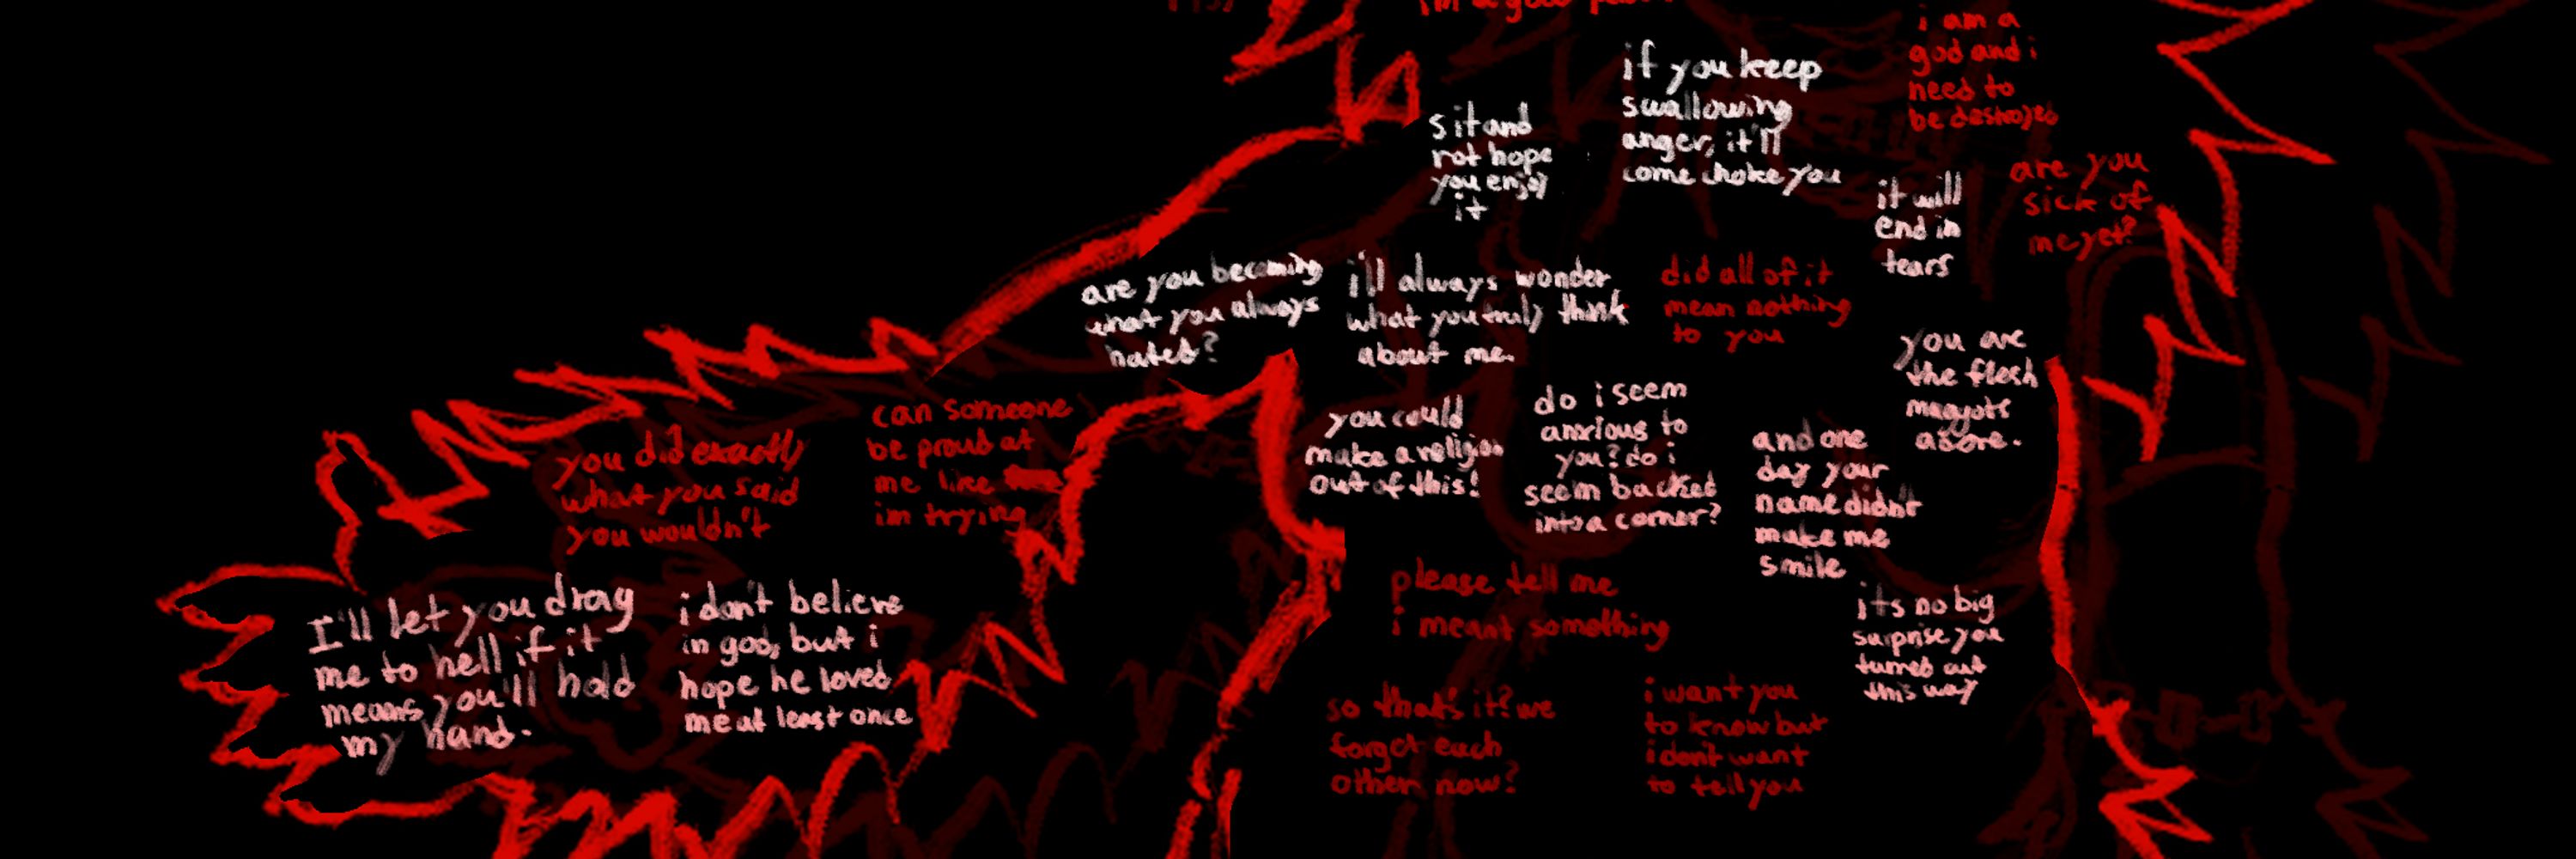 i'm a good
i am a
god and i
need to
be destroyed
if you keep
swallowing
anger, it'll
come choke you
sit and
rot hope
you enjoy
it
are you
sick of
me yet?
it will
end in
tears
are you becoming
what you always
hated?
i'll always wonder
what you truly think
about me.
did all of it
mean nothing
to you
you are
the flesh
maggots
adore.
you could
make a religion
out of this!
do i seem
anxious to
you? do i
seem backed
into a corner?
and one
day your
name didn't
make me
smile
can someone
be proud at
me like
im trying
you did exactly
what you said
you wouldn't
I'll let you drag
me to hell if it
means you'll hold
my hand.
i don't believe
in god, but i
hope he loved
me at least once
please tell me
i meant something
its no big
surprise you
turned out
this way
so that's it? we
forgot each
other now?
i want you
to know but
i don't want
to tell you